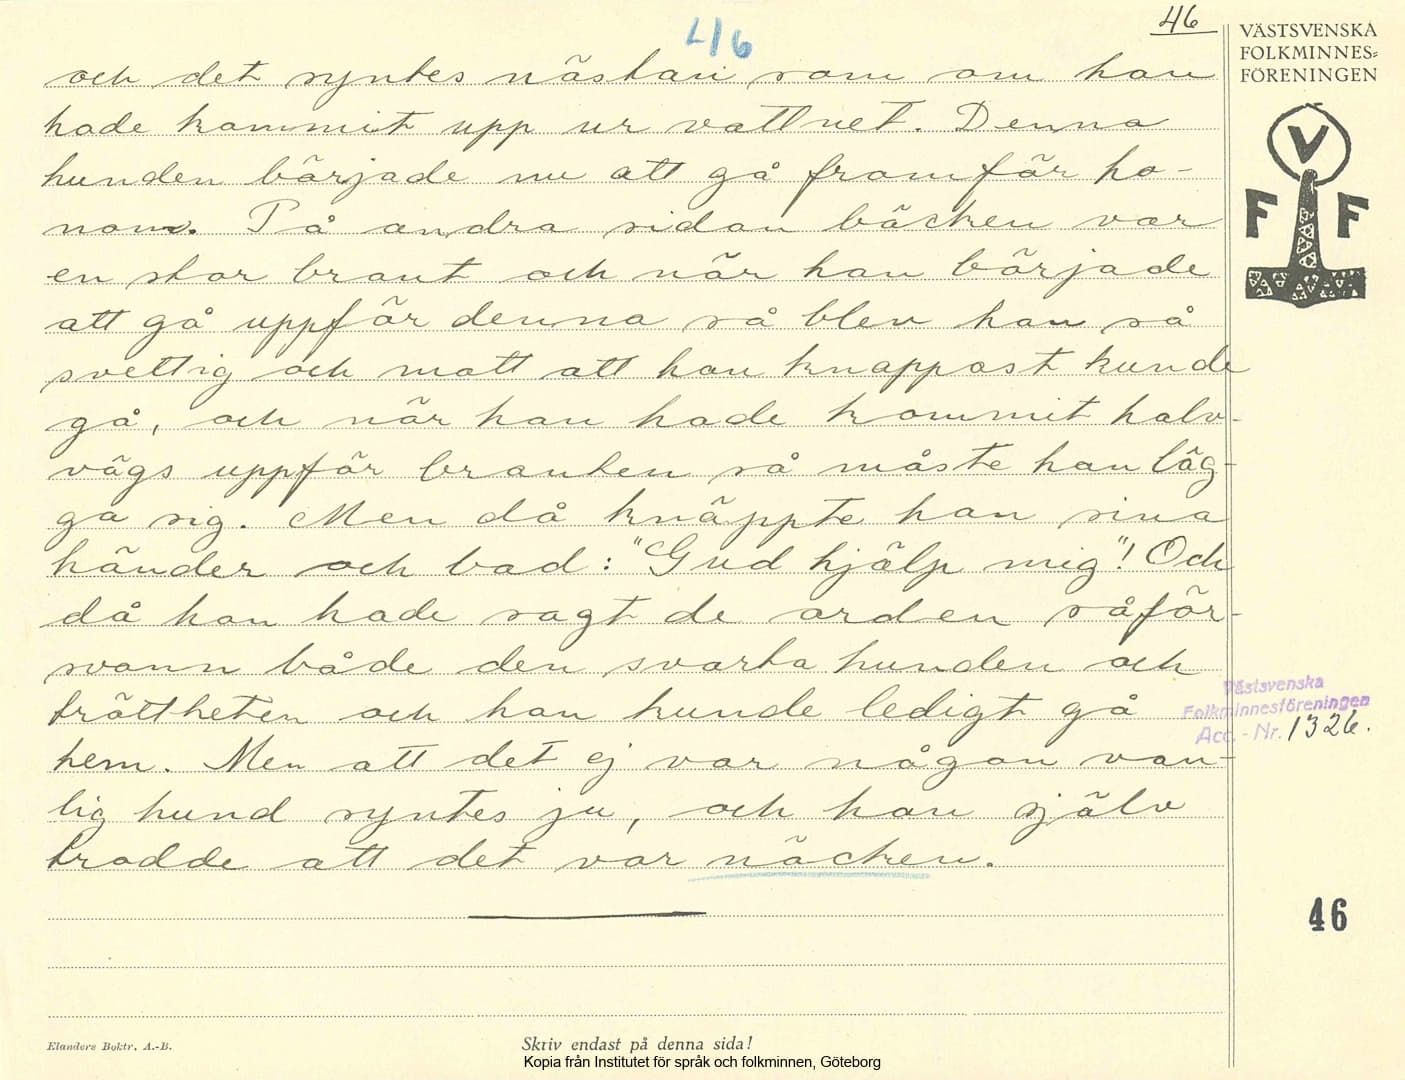 46
46
VÄSTSVENSKA
FOLKMINNES=
FÖRENINGEN
V
F F
och det syntes nästan som om han
hade kommit upp ur vattnet. Denna
hunden började nu att gå framför ho-
nom. På andra sidan bäcken var
en stor brant och när han började
att gå uppför denna så blev han så
svettig och matt att han knappast kunde
gå, och när han hade kommit halv-
vägs uppför branten så måste han läg-
ga sig. Men då knäppte han sina
händer och bad: "Gud hjälp mig"! Och
då han hade sagt de orden så för-
svann både den svarta hunden och
tröttheten och han kunde ledigt gå
hem. Men att det ej var någon van-
lig hund syntes ju, och han själv
trodde att det var näcken.
Västsvenska
Folkminnesföreningen
Acc. - Nr. 1326.
46
Elanders Boktr. A.-B.
Skriv endast på denna sida!
Kopia från Institutet för språk och folkminnen, Göteborg